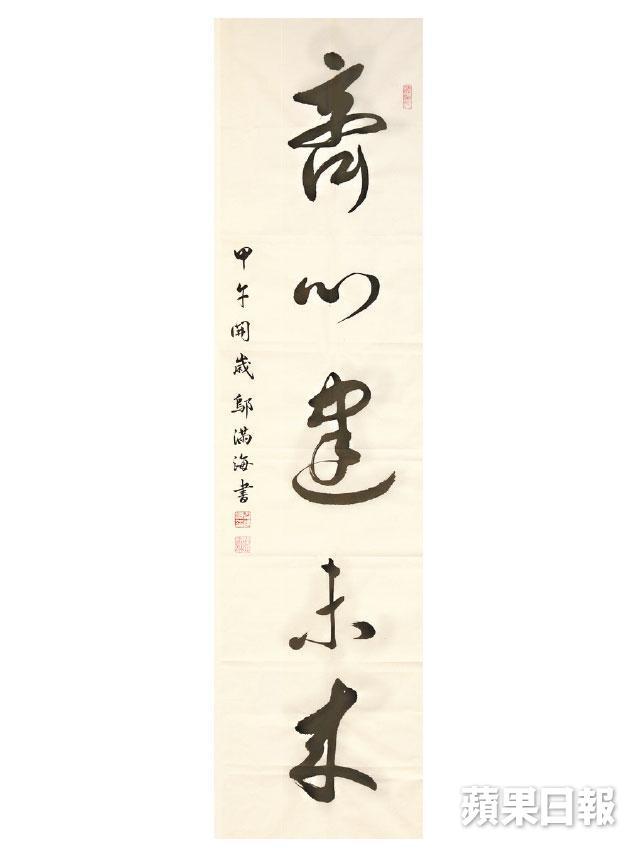 齊心建未來
甲午開歲鄔滿海書
蘋果日報